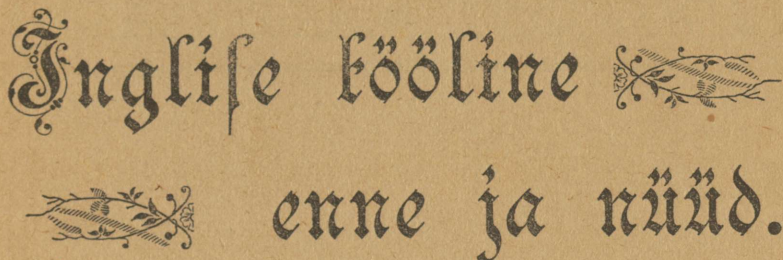 Inglise kööline
enne ja nüüd.